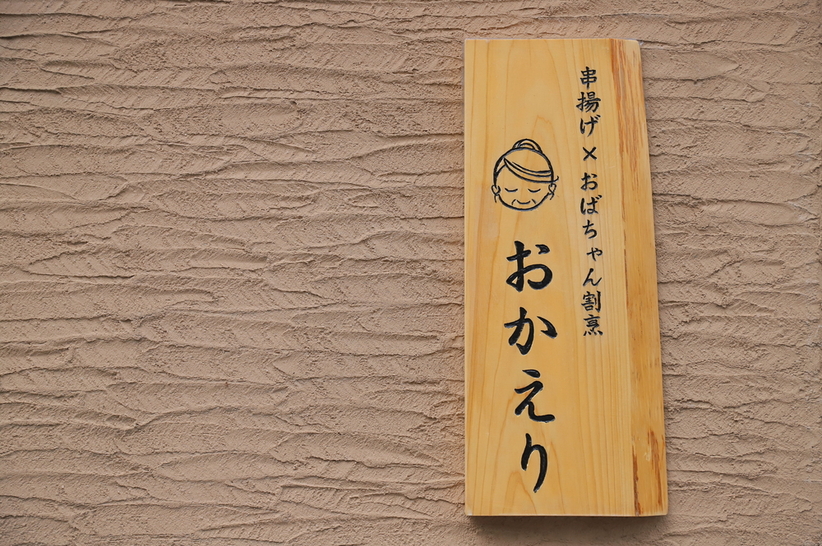 串揚げ×おばちゃん割烹
おかえり